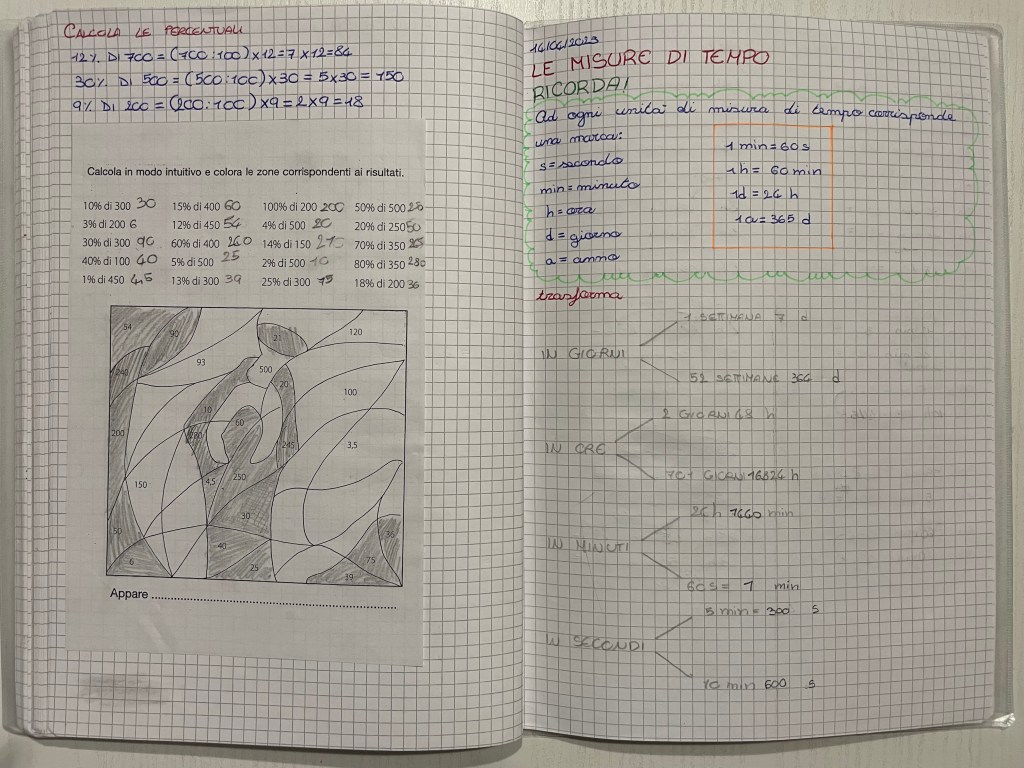 CALCOLA LE PERCENTUALI
12% DI 700 = (700:100)×12=7×12=84
30% DI 500 = (500:100)×30=5×30=150
9% DI 200 = (200:100)×9=2×9=18
Calcola in modo intuitivo e colora le zone corrispondenti ai risultati.
10% di 300 30 15% di 400 60 100% di 200 200 50% di 500
3% di 200 6 12% di 450 54 4% di 500 20 20% di 250 50
30% di 300 90 60% di 400 240 14% di 150 70% di 350
40% di 100 40 5% di 500 25 2% di 500 10 80% di 350 280
1% di 450 4,5 13% di 300 39 25% di 300 75 18% di 200 36
54 90 21 120
93
240 500
20
100
10
60
200 280 245 3,5
150 4,5 250
30
50 36
40
6 25 75
39
Appare
14/04/2023
LE MISURE DI TEMPO
RICORDA!
Ad ogni unità di misura di tempo corrisponde
una marca:
s = secondo
min = minuto
h = ora
d = giorno
a = anno
1 min = 60 s
1 h = 60 min
1d = 24 h
1a = 365 d
trasforma
IN GIORNI
1 SETTIMANA 7 d
52 SETTIMANE 364 d
IN ORE
2 GIORNI 48 h
701 GIORNI 16824 h
IN MINUTI
min
60 s = 1 min
IN SECONDI
5 min = 300 s
10 min 600 s